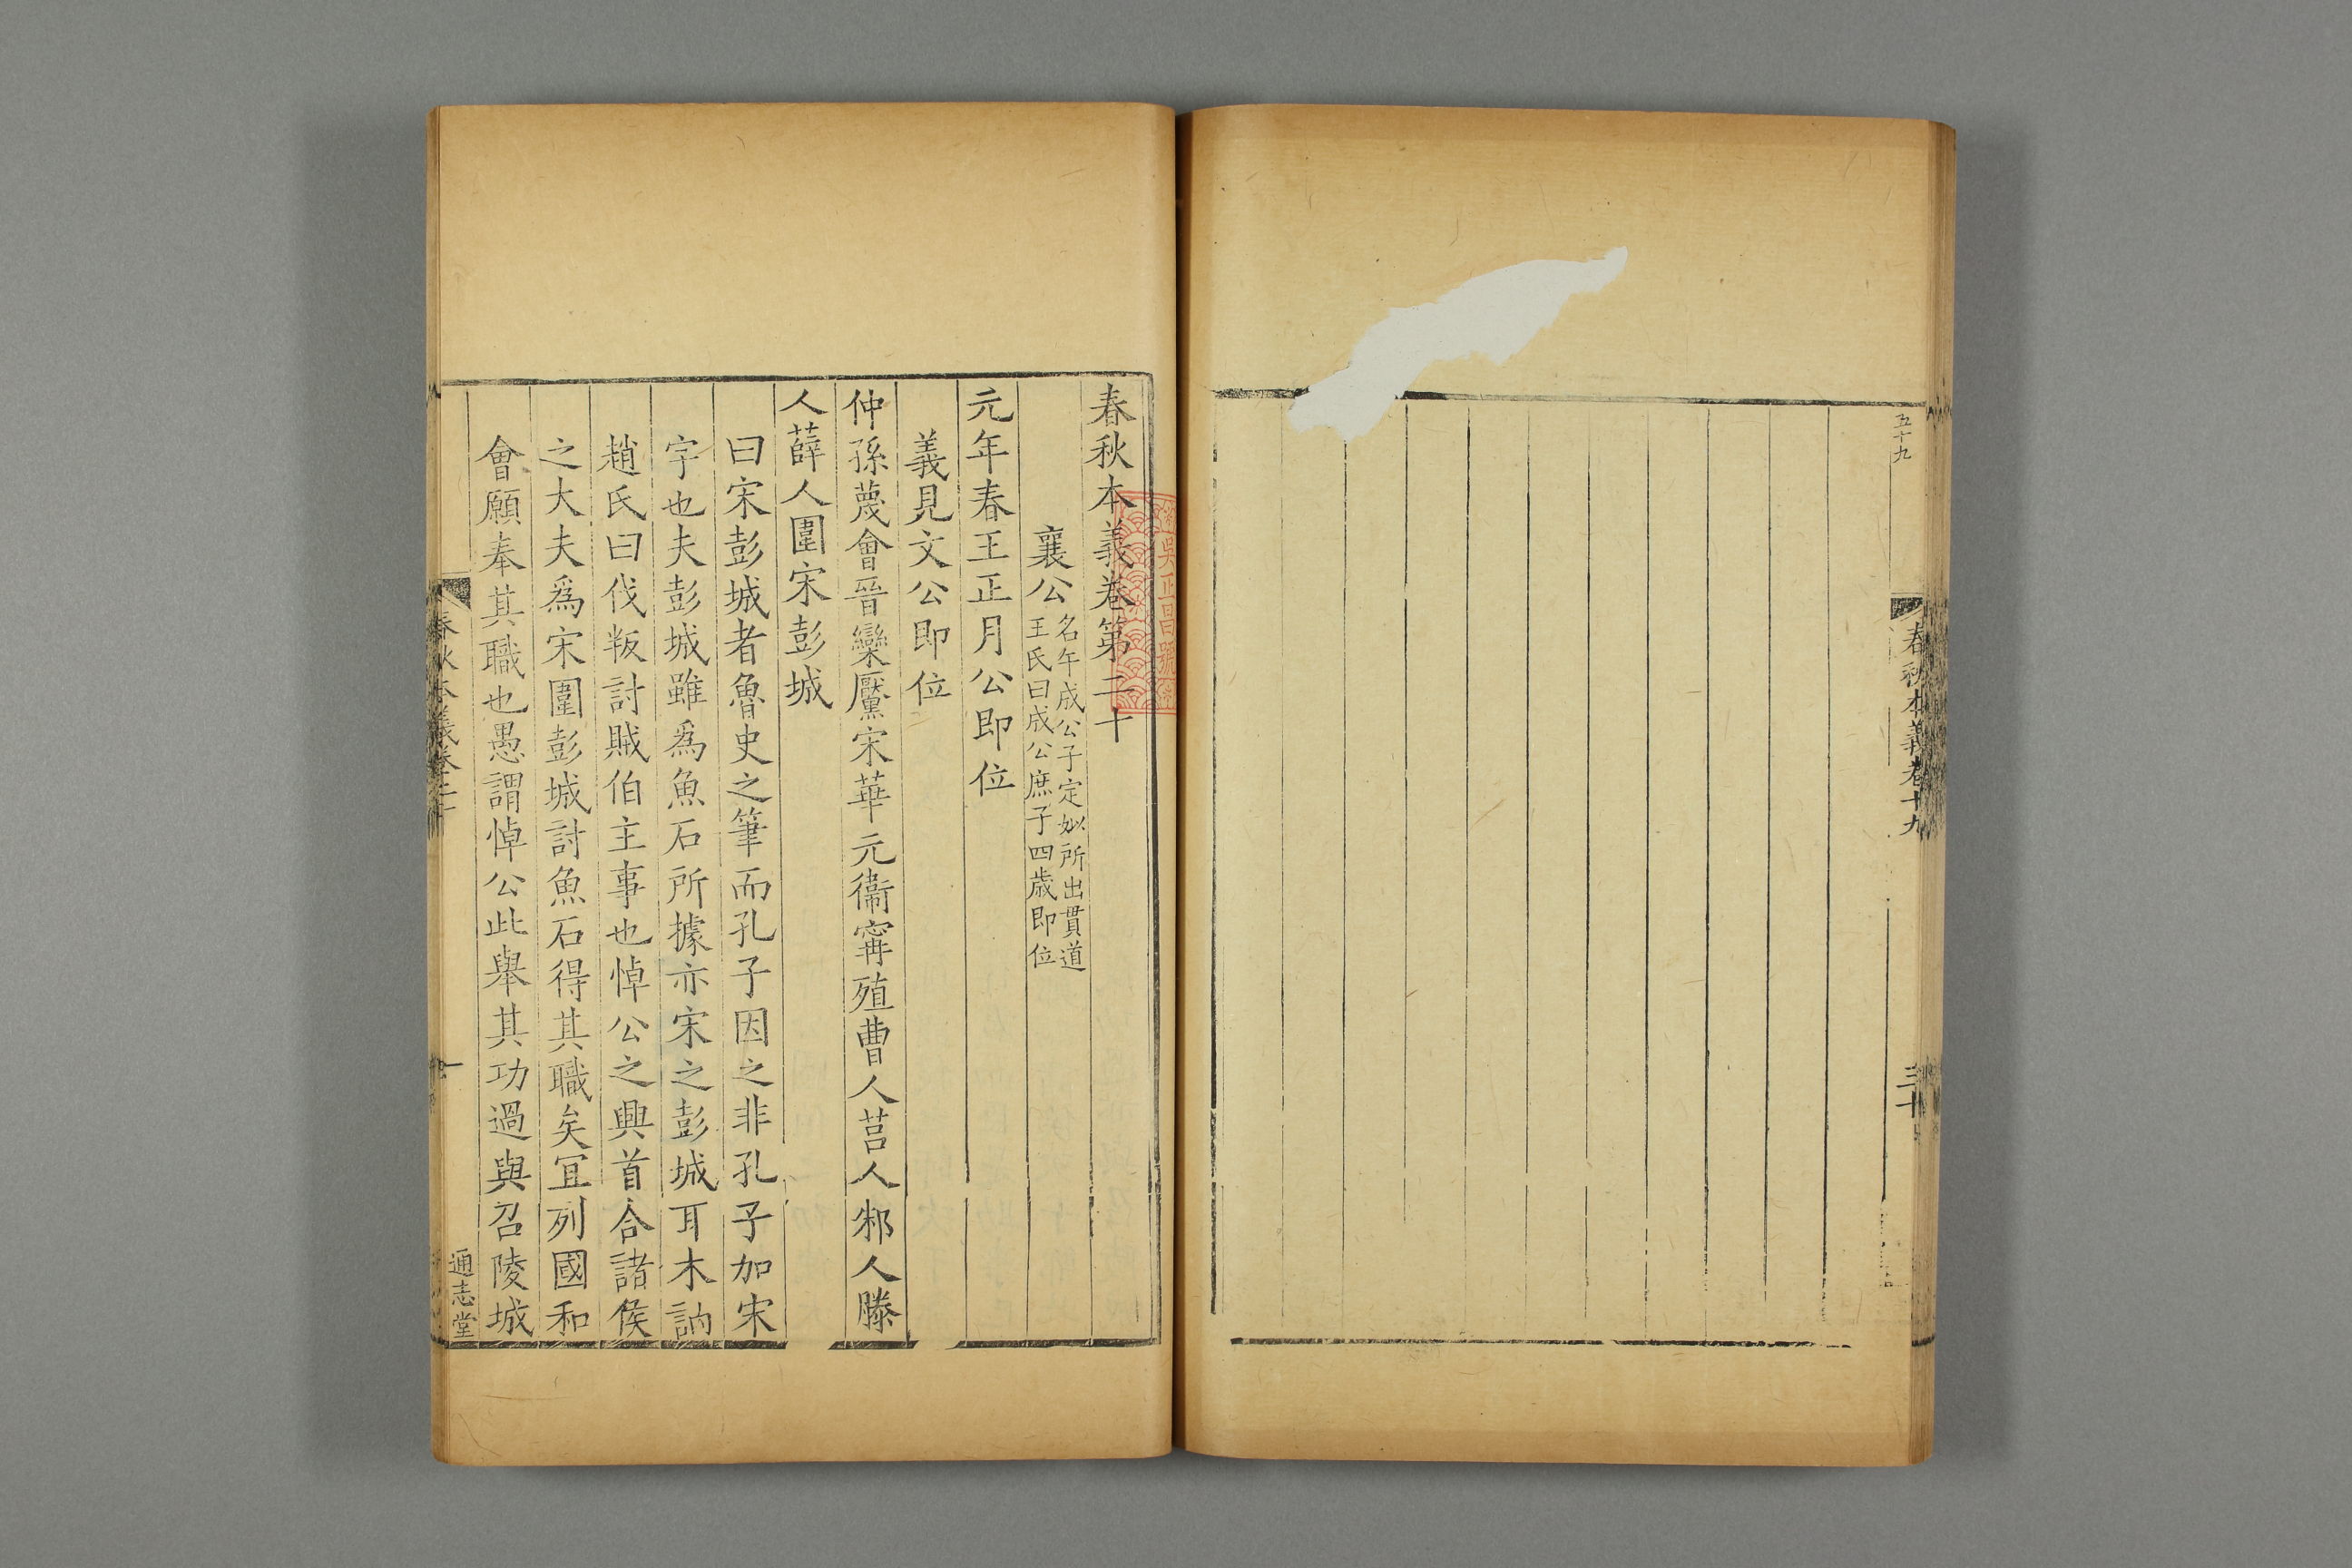 五十九
春秋本義卷十九
三十
春秋本義卷第二十
襄公
名午成公子定姒所出貫道
王氏曰成公庶子四歲即位
元年春王正月公即位
義見文公即位
仲孫蔑會晉欒黶宋華元衞甯殖曹人莒人邾人滕
人薛人圍宋彭城
曰宋彭城者魯史之筆而孔子因之非孔子加宋
字也夫彭城雖爲魚石所據亦宋之彭城耳木訥
趙氏曰伐叛討賊伯主事也悼公之興首合諸侯
之大夫爲宋圍彭城討魚石得其職矣宜列國和
會願奉其職也愚謂悼公此舉其功過與召陵城
春秋本義卷二十
一
通志堂
吳正昌號